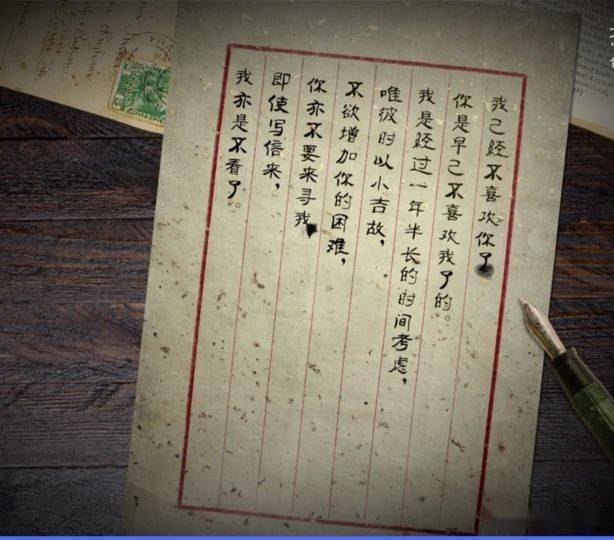 我已经不喜欢你了
你是早已不喜欢我了的。
我是经过一年半长的时间考虑，
唯彼时以小吉故，
不欲增加你的困难，
你亦不要来寻我
即使写信来，
我亦是不看了。